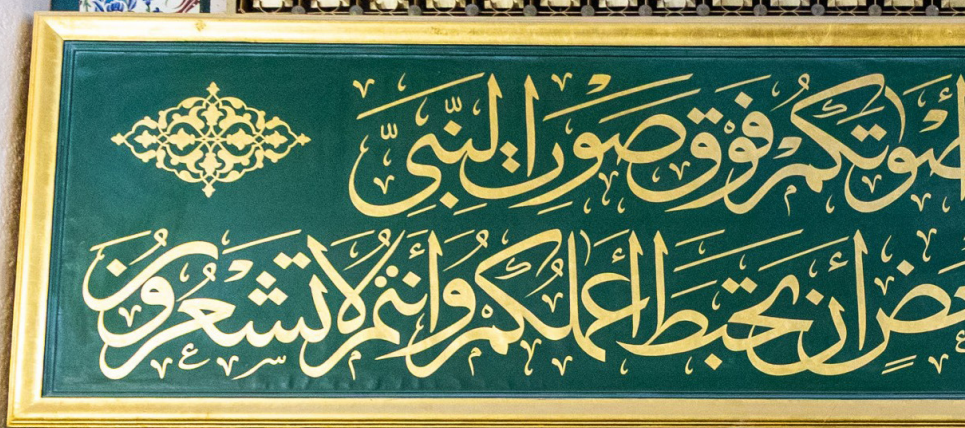 أصوتكم فوق صوت النبي
أن تحبط أعملكم وأنتم لا تشعرون